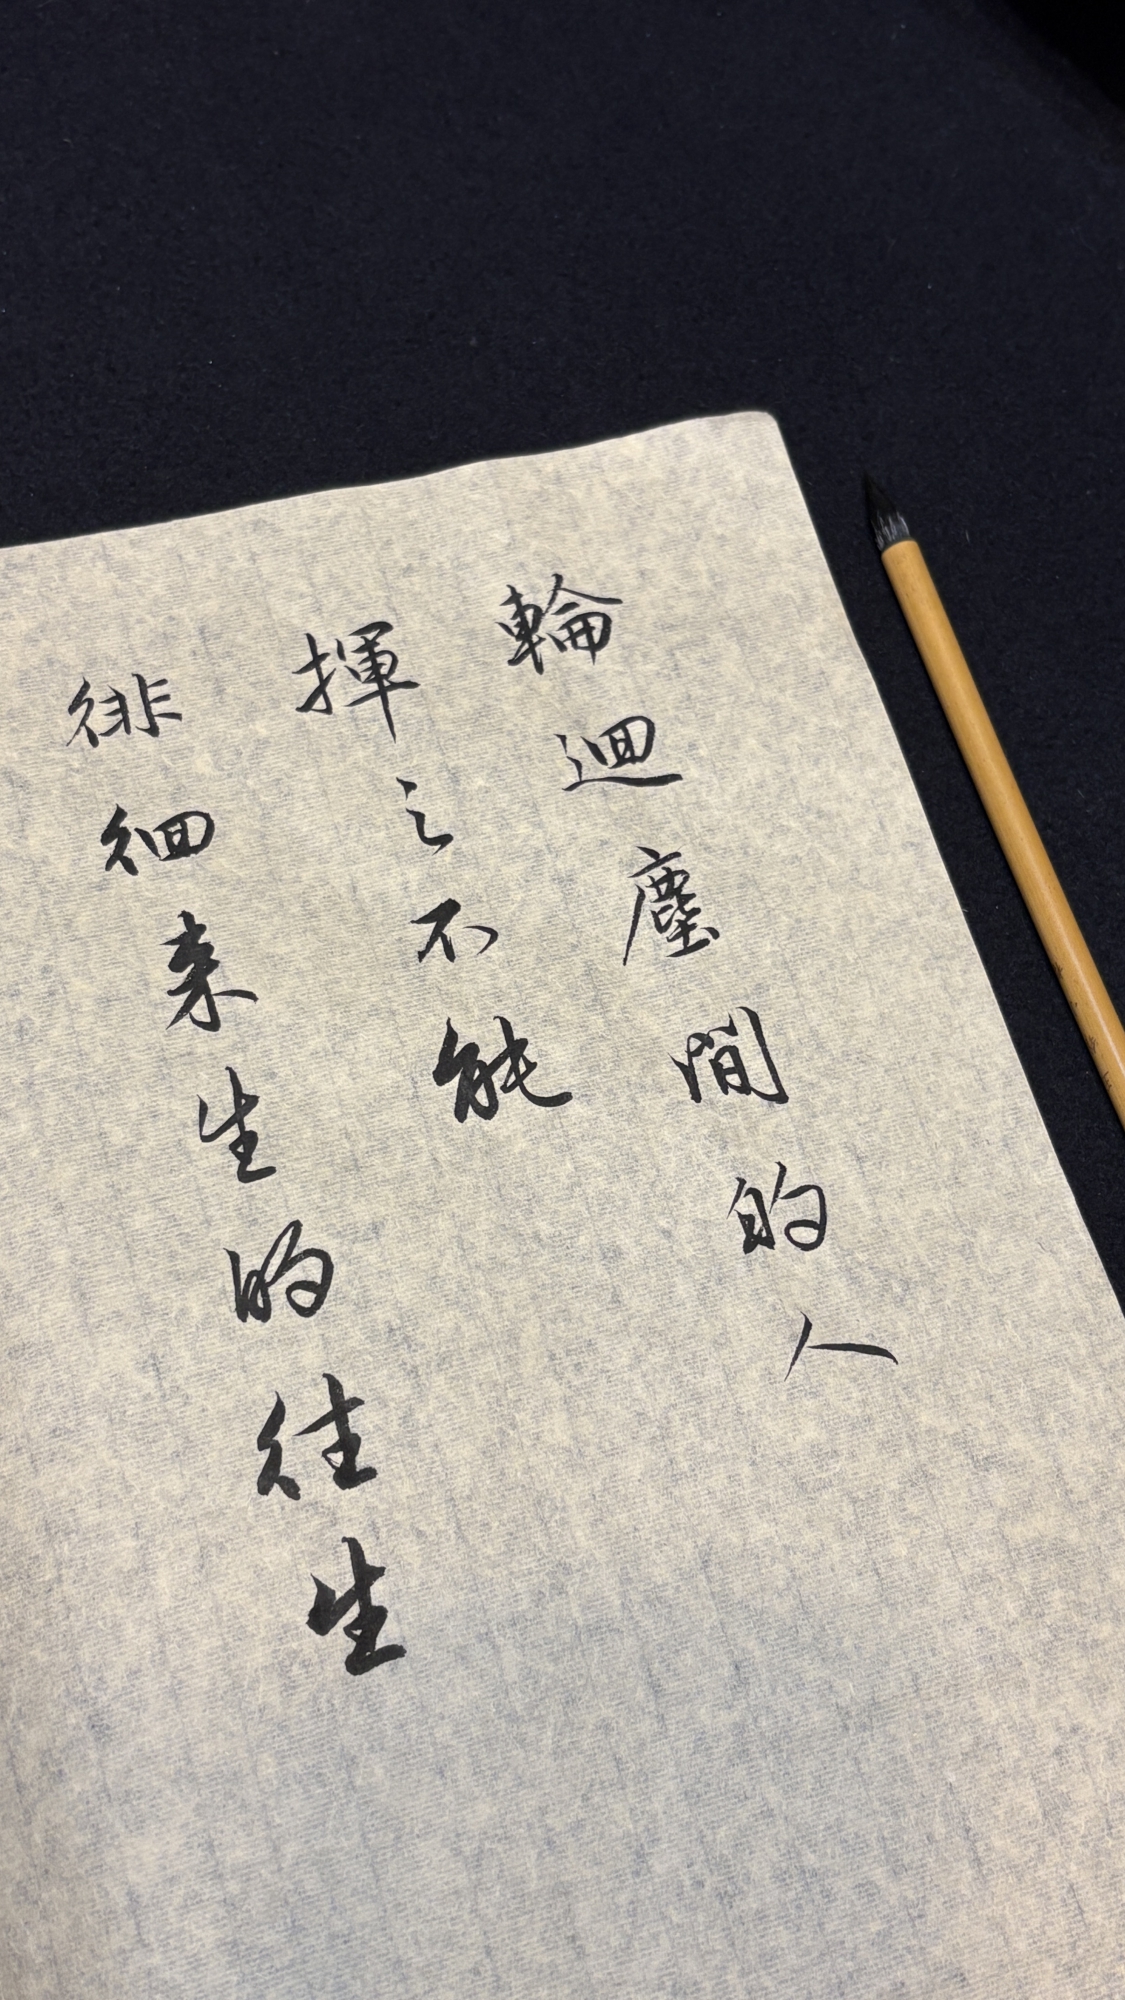 輪迴塵間的人
揮之不能
徘徊来生的往生